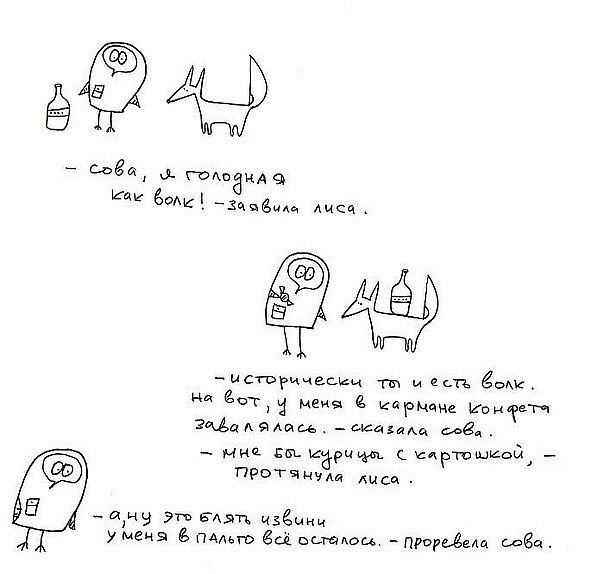 - сова, я голодная
как волк! - заявила лиса.
- исторически ты и есть волк.
на вот, у меня в кармане конфета
завалялась. - сказала сова.
- мне бы курицы с картошкой, -
протянула лиса.
- а, ну это блять извини
у меня в пальто всё осталось. - проревела сова.